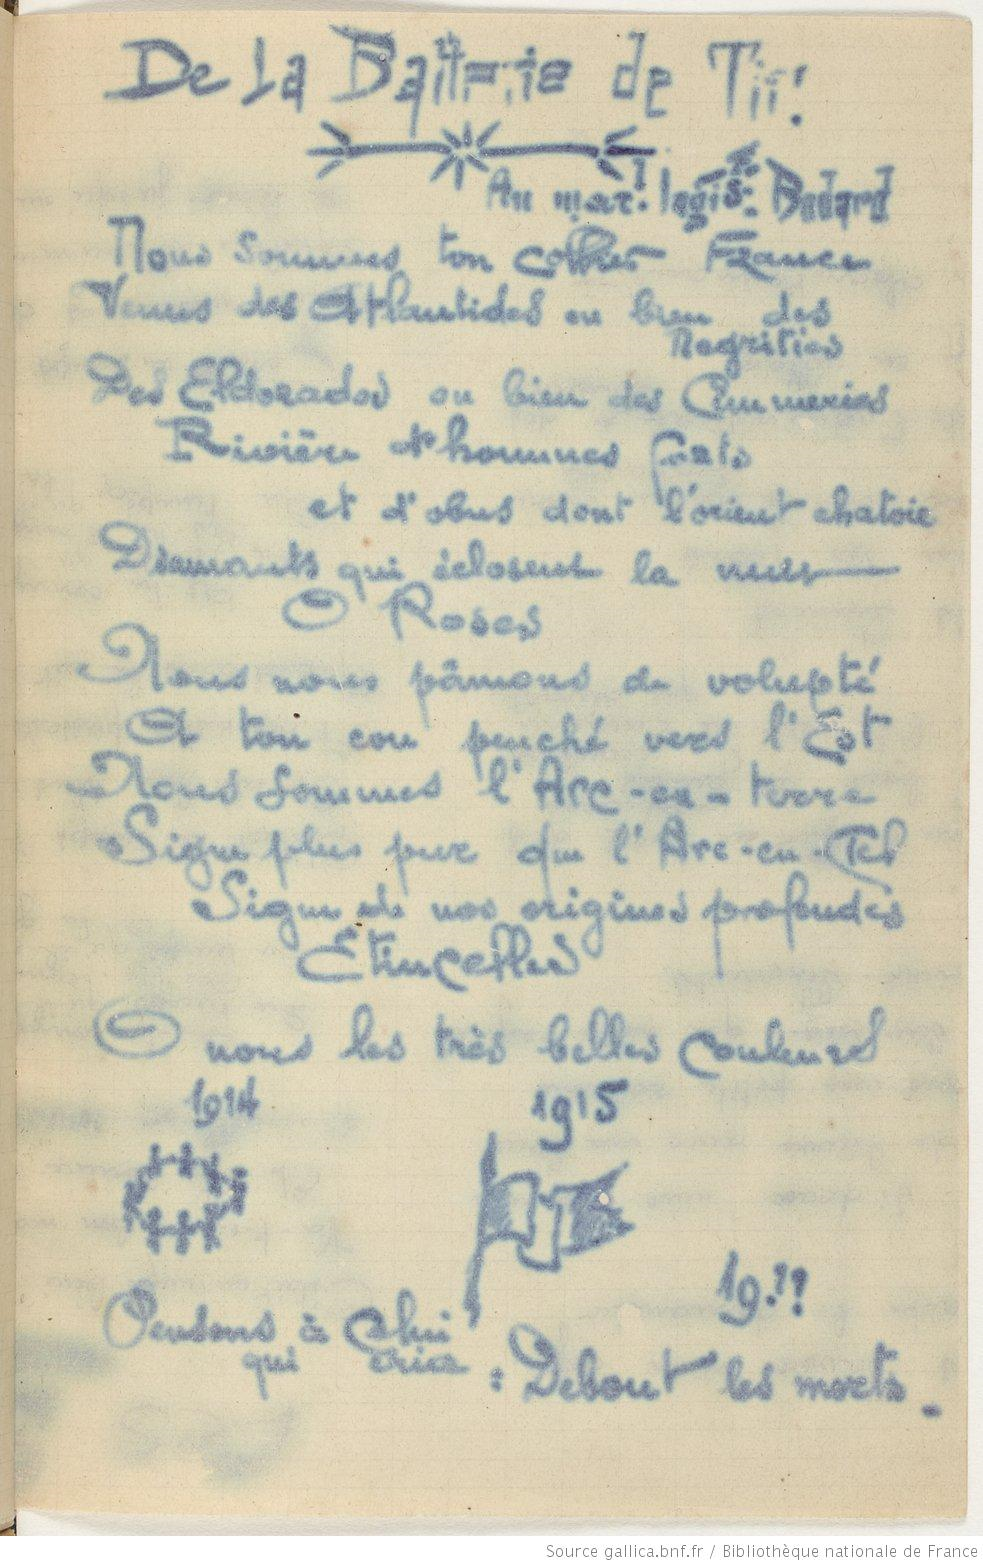 De la Batterie de Tir!
Au mar.l logis. Bodard
Nous sommes ton collier France
Venus des Atlantides ou bien des
Negrities
Des Eldorados ou bien des Cimmeries
Rivière d'hommes forts
et d'obus dont l'orient chatoie
Diamants qui éclosent la nuit
O Roses
Nous nous pâmons de volupté
A ton cou penché vers l'Est
Nous sommes l'Arc-en-terre
Signe plus pur que l'Arc-en-Ciel
Signe de nos origines profondes
Etincelles
O nous les très belles couleurs
1914
1915
19.??
Pensons à Celui
qui cria : Debout les morts.
Source gallica.bnf.fr / Bibliothèque nationale de France